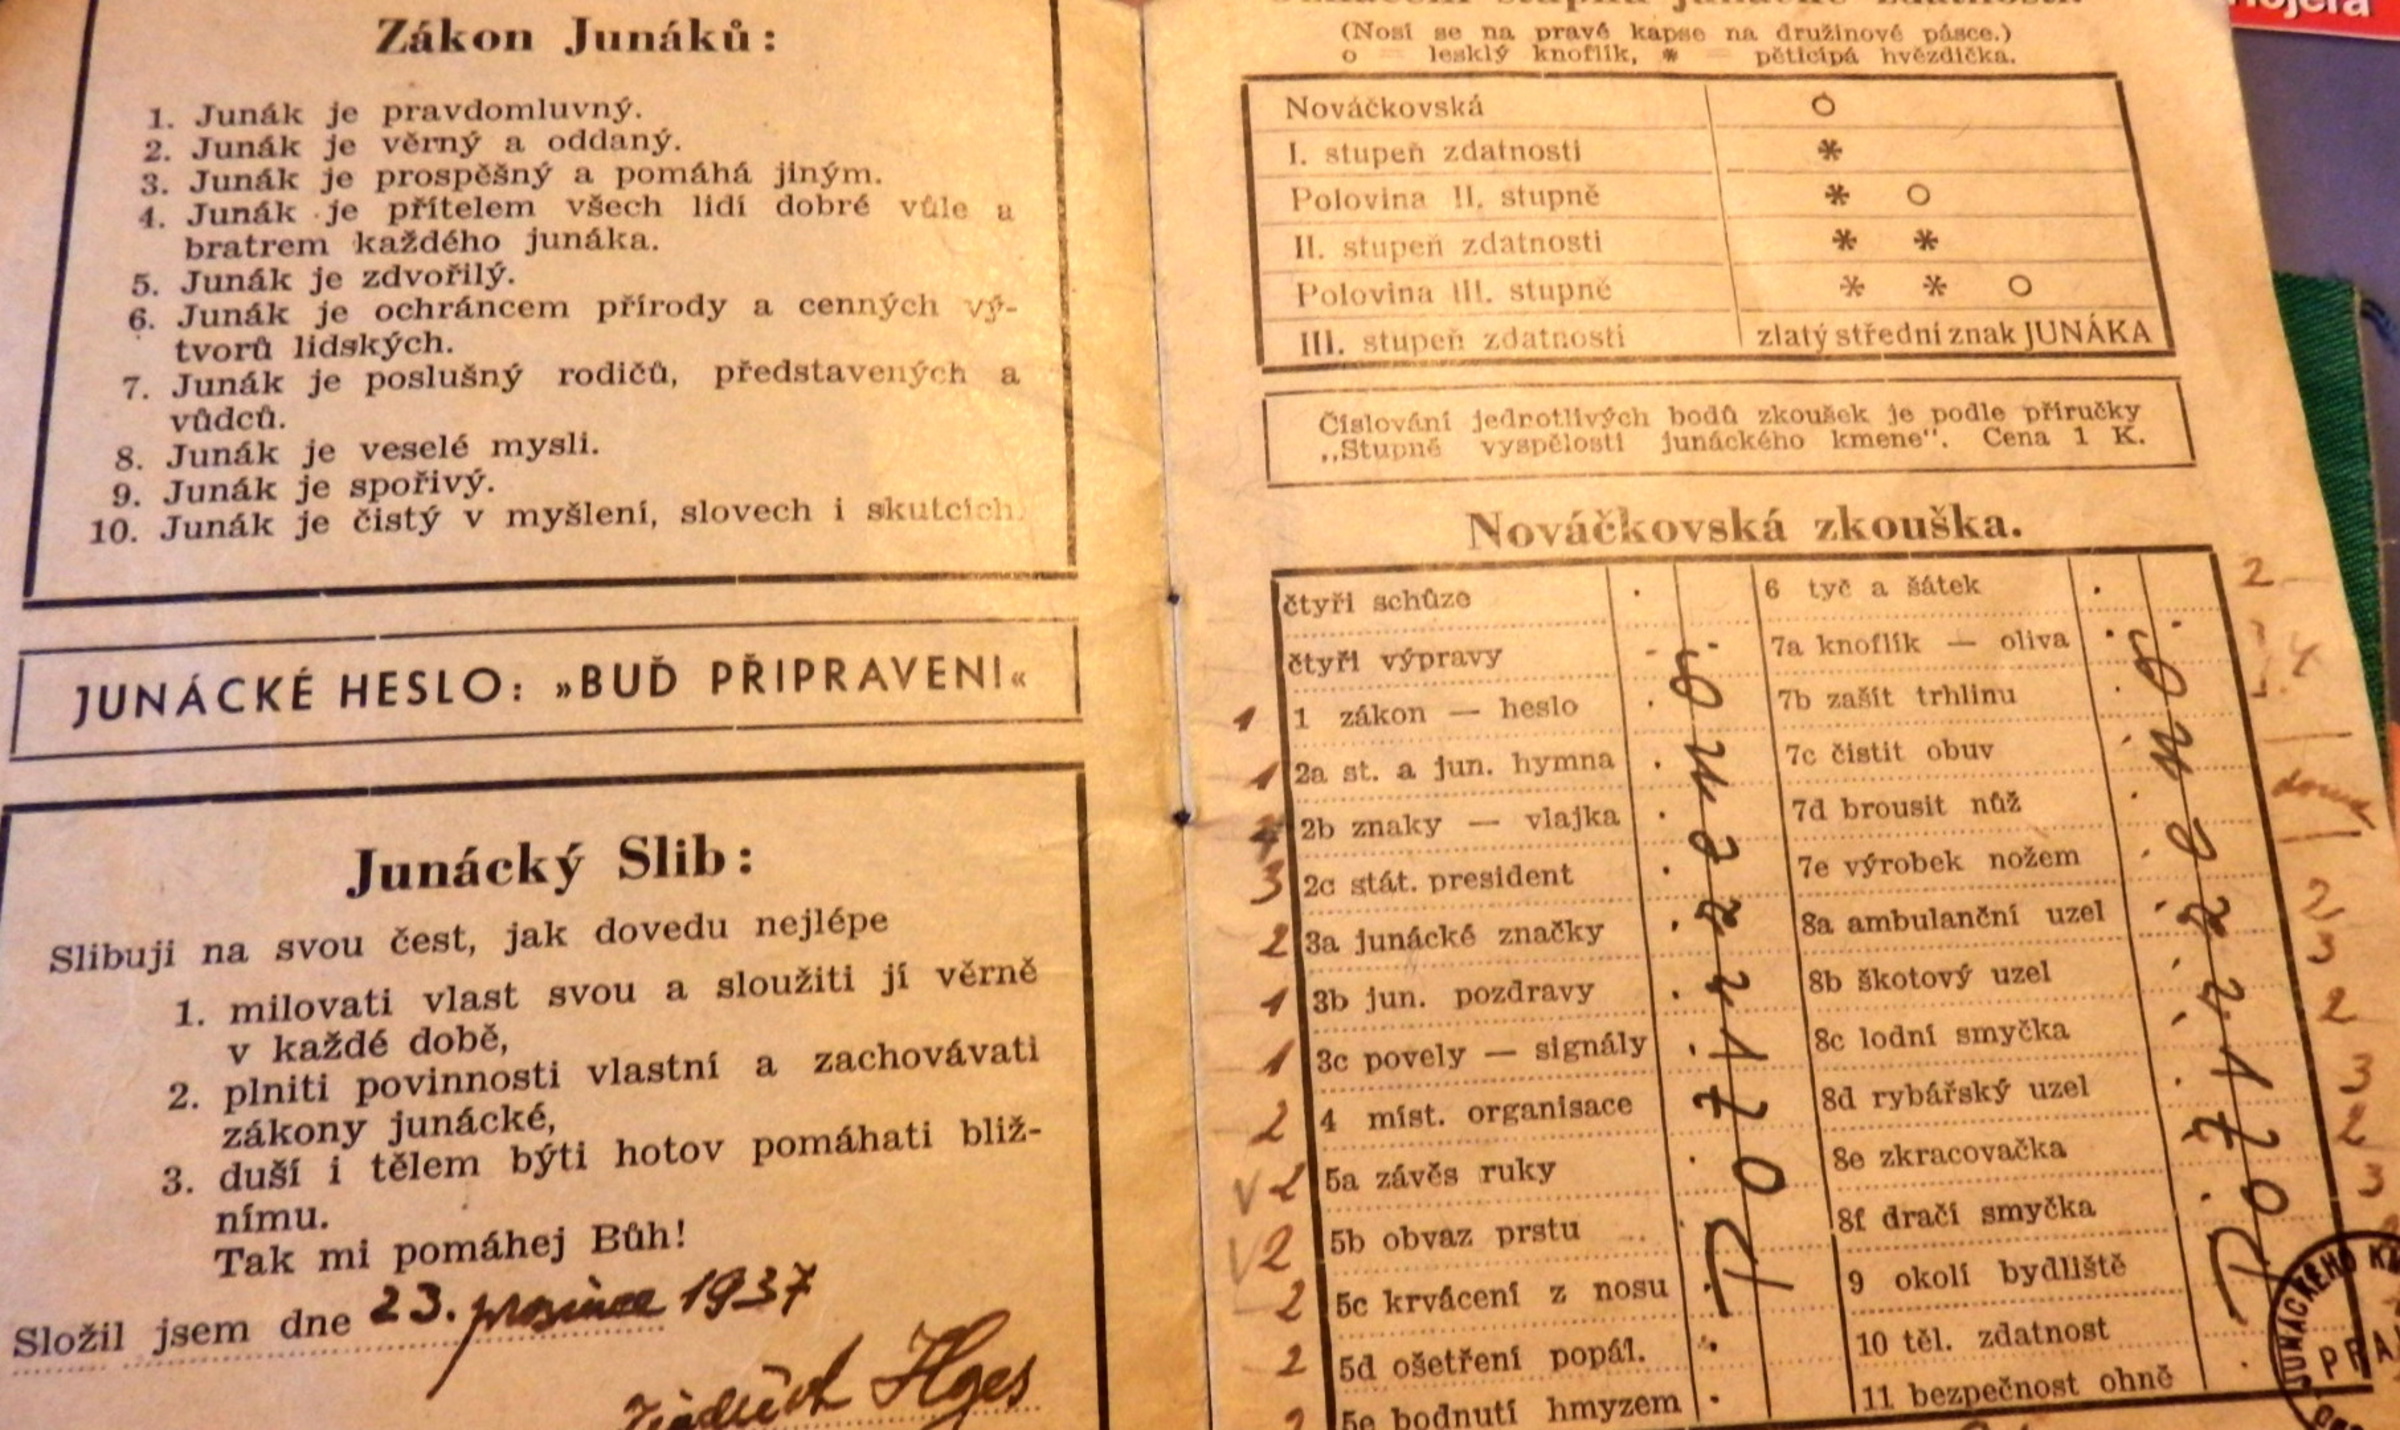 Zákon Junáků:
1. Junák je pravdomluvný.
2. Junák je věrný a oddaný.
3. Junák je prospěšný a pomáhá jiným.
4. Junák je přítelem všech lidí dobré vůle a
bratrem každého junáka.
5. Junák je zdvořilý.
6. Junák je ochráncem přírody a cenných vý-
tvorů lidských.
7. Junák je poslušný rodičů, představených a
vůdců.
8. Junák je veselé mysli.
9. Junák je spořivý.
10. Junák je čistý v myšlení, slovech i skutcích.
JUNÁCKÉ HESLO: »BUĎ PŘIPRAVEN!«
Junácký Slib:
Slibuji na svou čest, jak dovedu nejlépe
1. milovati vlast svou a sloužiti jí věrně
v každé době,
2. plniti povinnosti vlastní a zachovávati
zákony junácké,
3. duší i tělem býti hotov pomáhati bliž-
nímu.
Tak mi pomáhej Bůh!
Složil jsem dne 23. prosince 1937
(Nosí se na pravé kapse na družinové pásce.)
o = lesklý knoflík, * = pěticípá hvězdička.
Nováčkovská o
I. stupeň zdatnosti *
Polovina II. stupně * o
II. stupeň zdatnosti * *
Polovina III. stupně * * o
III. stupeň zdatnosti zlatý střední znak JUNÁKA
Číslování jednotlivých bodů zkoušek je podle příručky
„Stupně vyspělosti junáckého kmene". Cena 1 K.
Nováčkovská zkouška.
čtyři schůze
čtyři výpravy
1 1 zákon — heslo
1 2a st. a jun. hymna
2b znaky — vlajka
3 2c stát. president
2 3a junácké značky
1 3b jun. pozdravy
1 3c povely — signály
2 4 míst. organisace
V 2 5a závěs ruky
V 2 5b obvaz prstu
2 5c krvácení z nosu
2 5d ošetření popál.
2 5e bodnutí hmyzem
6 tyč a šátek 2
7a knoflík — oliva
7b zašít trhlinu
7c čistit obuv
7d brousit nůž
7e výrobek nožem
8a ambulanční uzel 2
8b škotový uzel 3
8c lodní smyčka 2
8d rybářský uzel 3
8e zkracovačka 2
8f dračí smyčka 3
9 okolí bydliště
10 těl. zdatnost
11 bezpečnost ohně
JUNÁCKÉHO